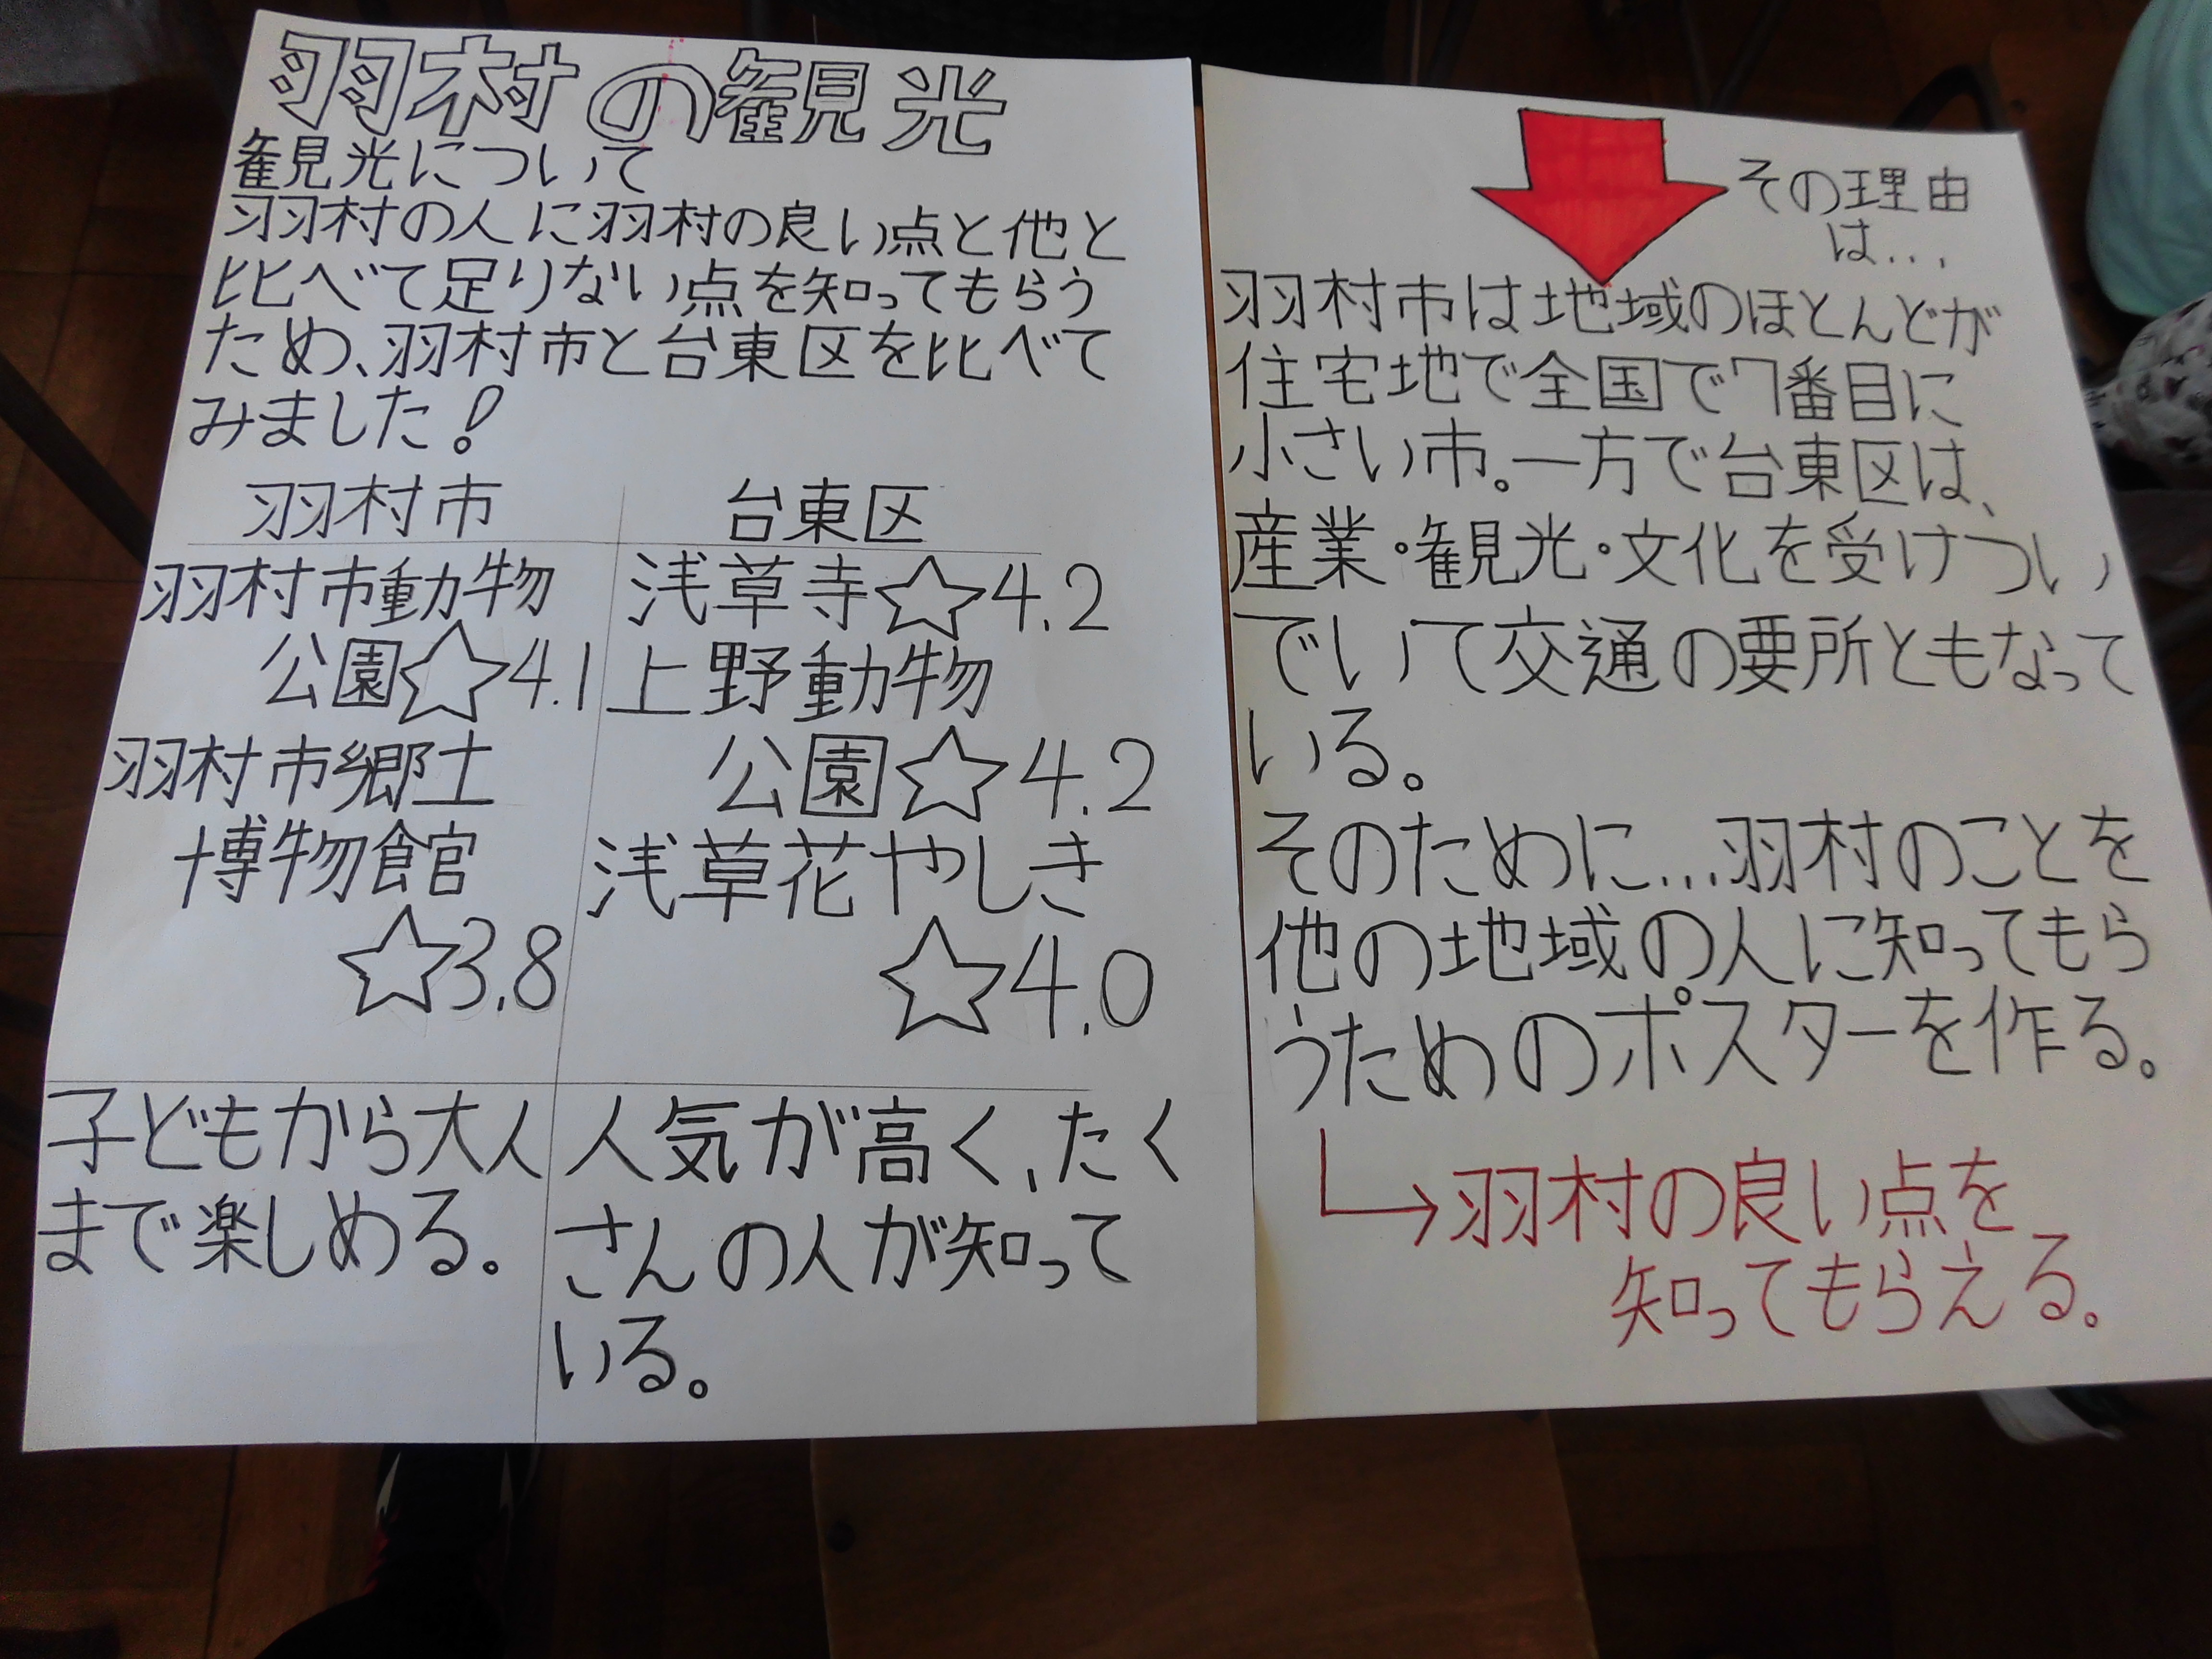 羽村の観光
観光について
羽村の人に羽村の良い点と他と
比べて足りない点を知ってもらう
ため、羽村市と台東区を比べて
みました!
羽村市
羽村市動物
公園☆4.1
羽村市郷土
博物館
☆3.8
子どもから大人
まで楽しめる。
台東区
浅草寺☆4.2
上野動物
公園☆4.2
浅草花やしき
☆4.0
人気が高く、たく
さんの人が知って
いる。
その理由
は...
羽村市は地域のほとんどが
住宅地で全国で7番目に
小さい市。一方で台東区は、
産業・観光・文化を受けつい
でいて交通の要所ともなって
いる。
そのために...羽村のことを
他の地域の人に知ってもら
うためのポスターを作る。
→羽村の良い点を
知ってもらえる。